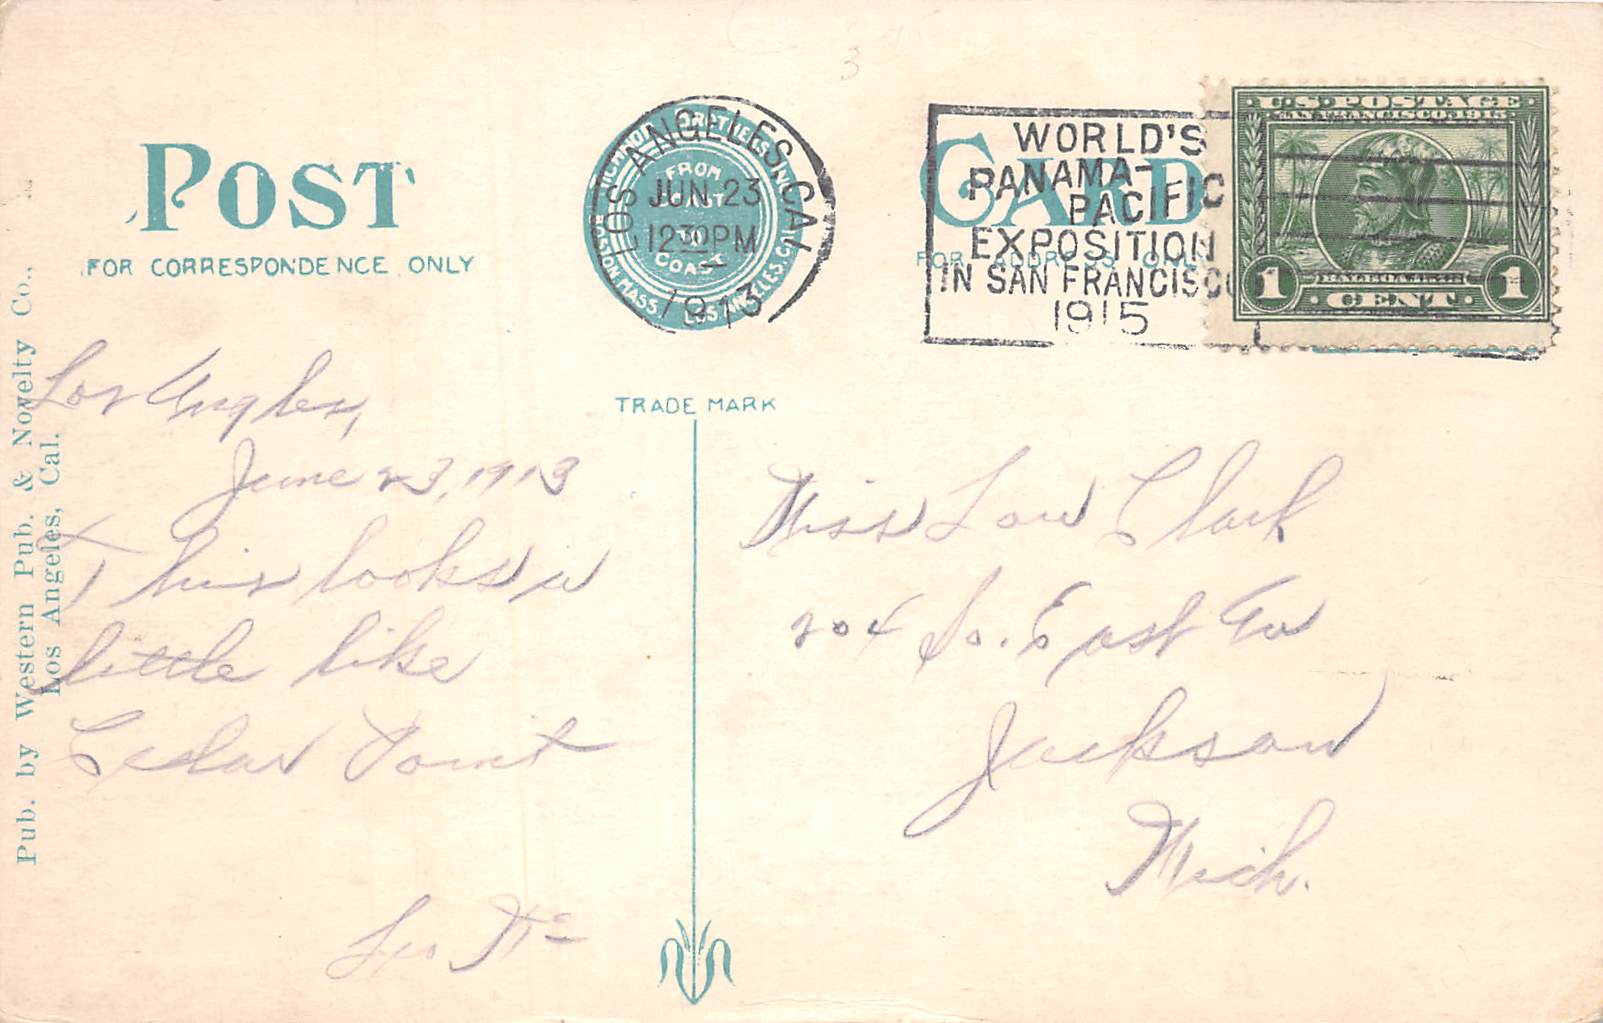 3
POST
CARD
FOR CORRESPONDENCE ONLY
FOR ADDRESS ONLY
BROTHERS, INC.
FROM
COAST
TO
COAST
BOSTON, MASS. LOS ANGELES, CAL.
TRADE MARK
LOS ANGELES, CAL.
JUN 23
12 30 PM
1913
WORLD'S
PANAMA-
PACIFIC
EXPOSITION
IN SAN FRANCISCO
1915
U.S. POSTAGE
SAN FRANCISCO 1915
BALBOA
1 CENT 1
Pub. by Western Pub. & Novelty Co.,
Los Angeles, Cal.
Los Angles,
June 23, 1913
This looks a
little like
Cedar Point
Miss Lou Clark
204 So. East Av
Jackson
Mich.